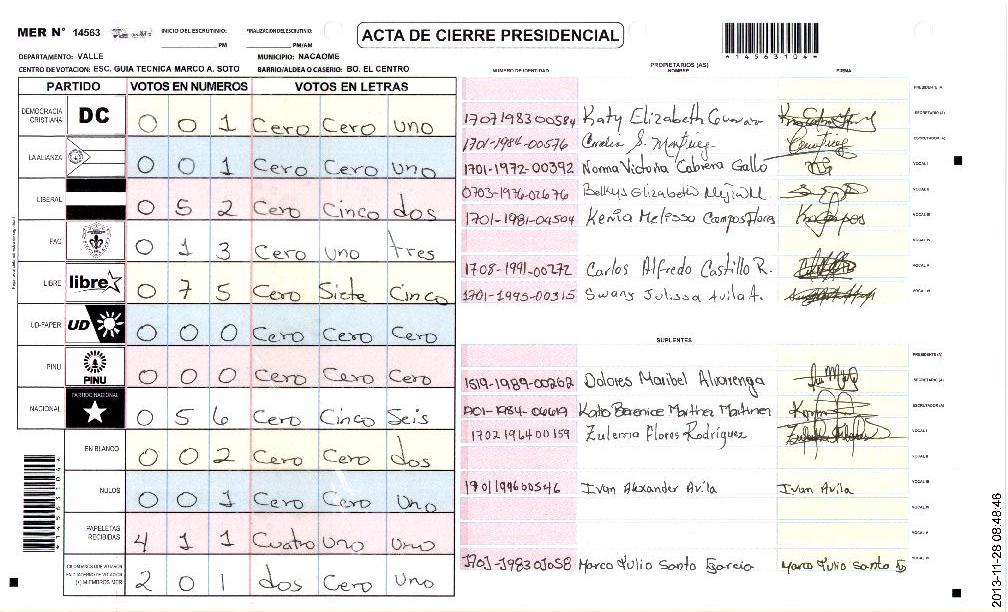 MER N° 14563 INICIO DEL ESCRUTINIO: FINALIZACION DEL ESCRUTINIO: ACTA DE CIERRE PRESIDENCIAL
PM PM/AM *14563104*
DEPARTAMENTO: VALLE MUNICIPIO: NACAOME
CENTRO DE VOTACION: ESC. GUIA TECNICA MARCO A. SOTO BARRIO/ALDEA O CASERIO: BO. EL CENTRO
PARTIDO VOTOS EN NUMEROS VOTOS EN LETRAS
DEMOCRACIA CRISTIANA DC 0 0 1 Cero Cero uno
LA ALIANZA 0 0 1 Cero Cero Uno
LIBERAL 0 5 2 Cero Cinco dos
PAC 0 1 3 Cero uno tres
LIBRE libre 0 7 5 Cero Siete Cinco
UD-FAPER UD 0 0 0 Cero Cero Cero
PINU PINU 0 0 0 Cero Cero Cero
NACIONAL PARTIDO NACIONAL 0 5 6 Cero Cinco Seis
EN BLANCO 0 0 2 Cero Cero dos
NULOS 0 0 1 Cero Cero Uno
PAPELETAS RECIBIDAS 4 1 1 Cuatro Uno Uno
CIUDADANOS QUE VOTARON
(+) MIEMBROS MER 2 0 1 dos Cero uno
PROPIETARIOS (AS)
NUMERO DE IDENTIDAD NOMBRE FIRMA
PRESIDENTE (A)
1707198300584 Katy Elizabeth SECRETARIO (A)
1701-1984-00576 ESCRUTADOR (A)
1701-1972-00392 Norma Victoria Cabrera Gallo VOCAL I
0703-1976-02676 Belkys Elizabeth VOCAL II
1701-1981-04504 Kenia Melissa Campos Flores VOCAL III
VOCAL IV
1708-1991-00272 Carlos Alfredo Castillo R. VOCAL V
1701-1995-00315 Swany Julissa Avila A. VOCAL VI
SUPLENTES
PRESIDENTE (A)
1519-1989-00262 Dolores Maribel Alvarenga SECRETARIO (A)
Martinez Martinez ESCRUTADOR (A)
1702196400159 Zulema Flores Rodríguez VOCAL I
VOCAL II
1701199600546 Ivan Alexander Avila Ivan Avila VOCAL III
VOCAL IV
VOCAL V
Marco Tulio Santo Garcia Marco Tulio Santo G VOCAL VI
*14563104*
2013-11-28 08:48:46